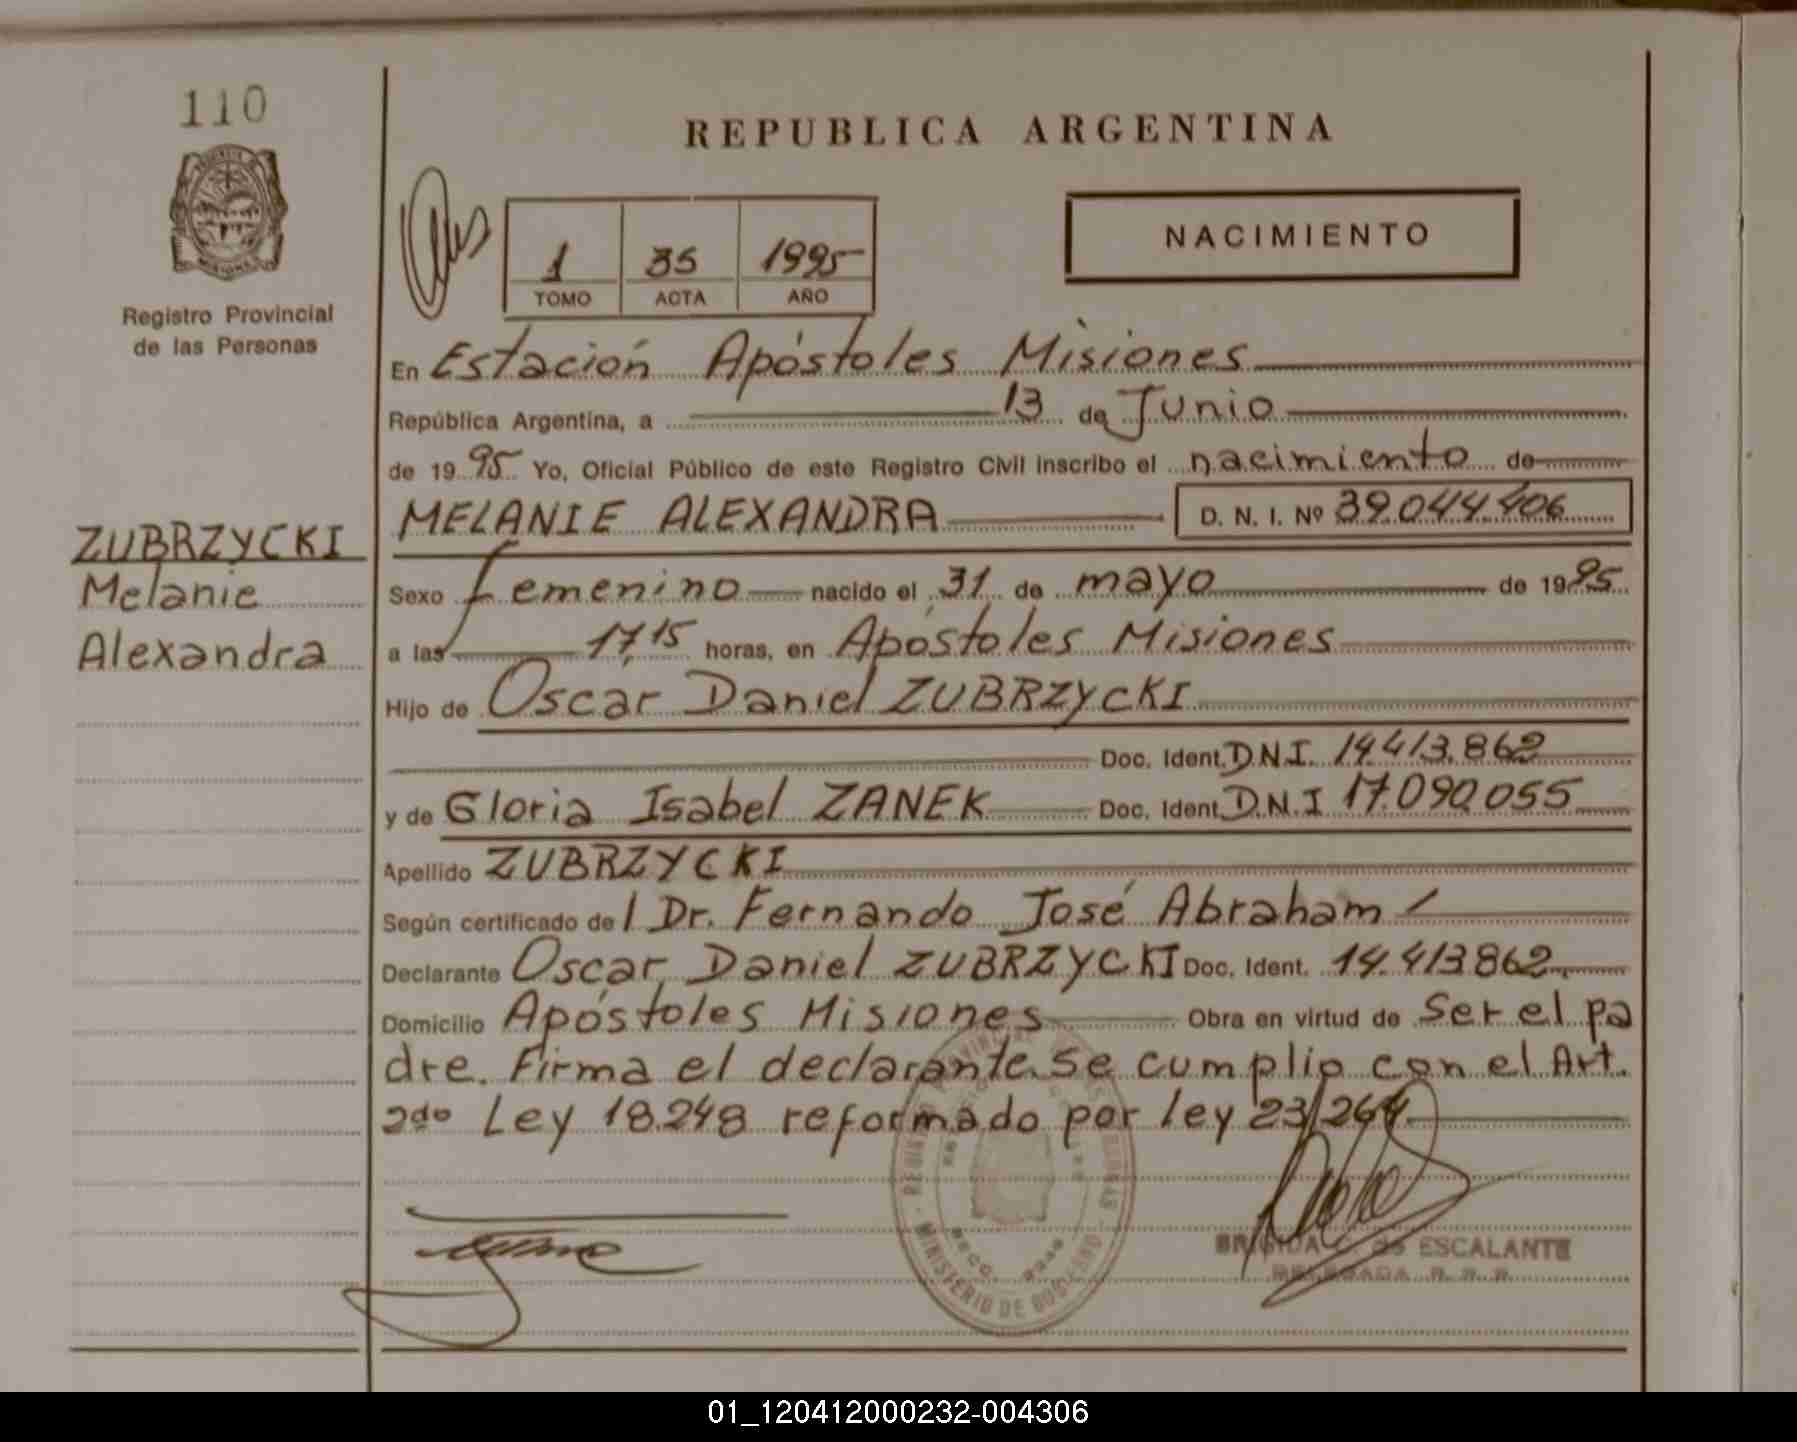 110
REPUBLICA ARGENTINA
NACIMIENTO
1 35 1995
TOMO ACTA AÑO
Registro Provincial
de las Personas
En Estación Apóstoles Misiones
República Argentina, a 13 de Junio
de 1995 Yo, Oficial Público de este Registro Civil inscribo el nacimiento de
MELANIE ALEXANDRA D. N. I. Nº 39.044.406
ZUBRZYCKI
Melanie
Alexandra
Sexo femenino nacido el 31 de mayo de 1995
a las 17,15 horas, en Apóstoles Misiones
Hijo de Oscar Daniel ZUBRZYCKI
Doc. Ident. D.N.I. 14.413.862
y de Gloria Isabel ZANEK Doc. Ident. D.N.I 17.090.055
Apellido ZUBRZYCKI
Según certificado de / Dr. Fernando José Abraham /
Declarante Oscar Daniel ZUBRZYCKI Doc. Ident. 14.413.862
Domicilio Apóstoles Misiones Obra en virtud de ser el pa
dre. Firma el declarante. Se cumplio con el Art.
2do Ley 18.248 reformado por ley 23/264
MINISTERIO DE GOBIERNO
BRIGIDA C. de ESCALANTE
DELEGADA
01_120412000232-004306